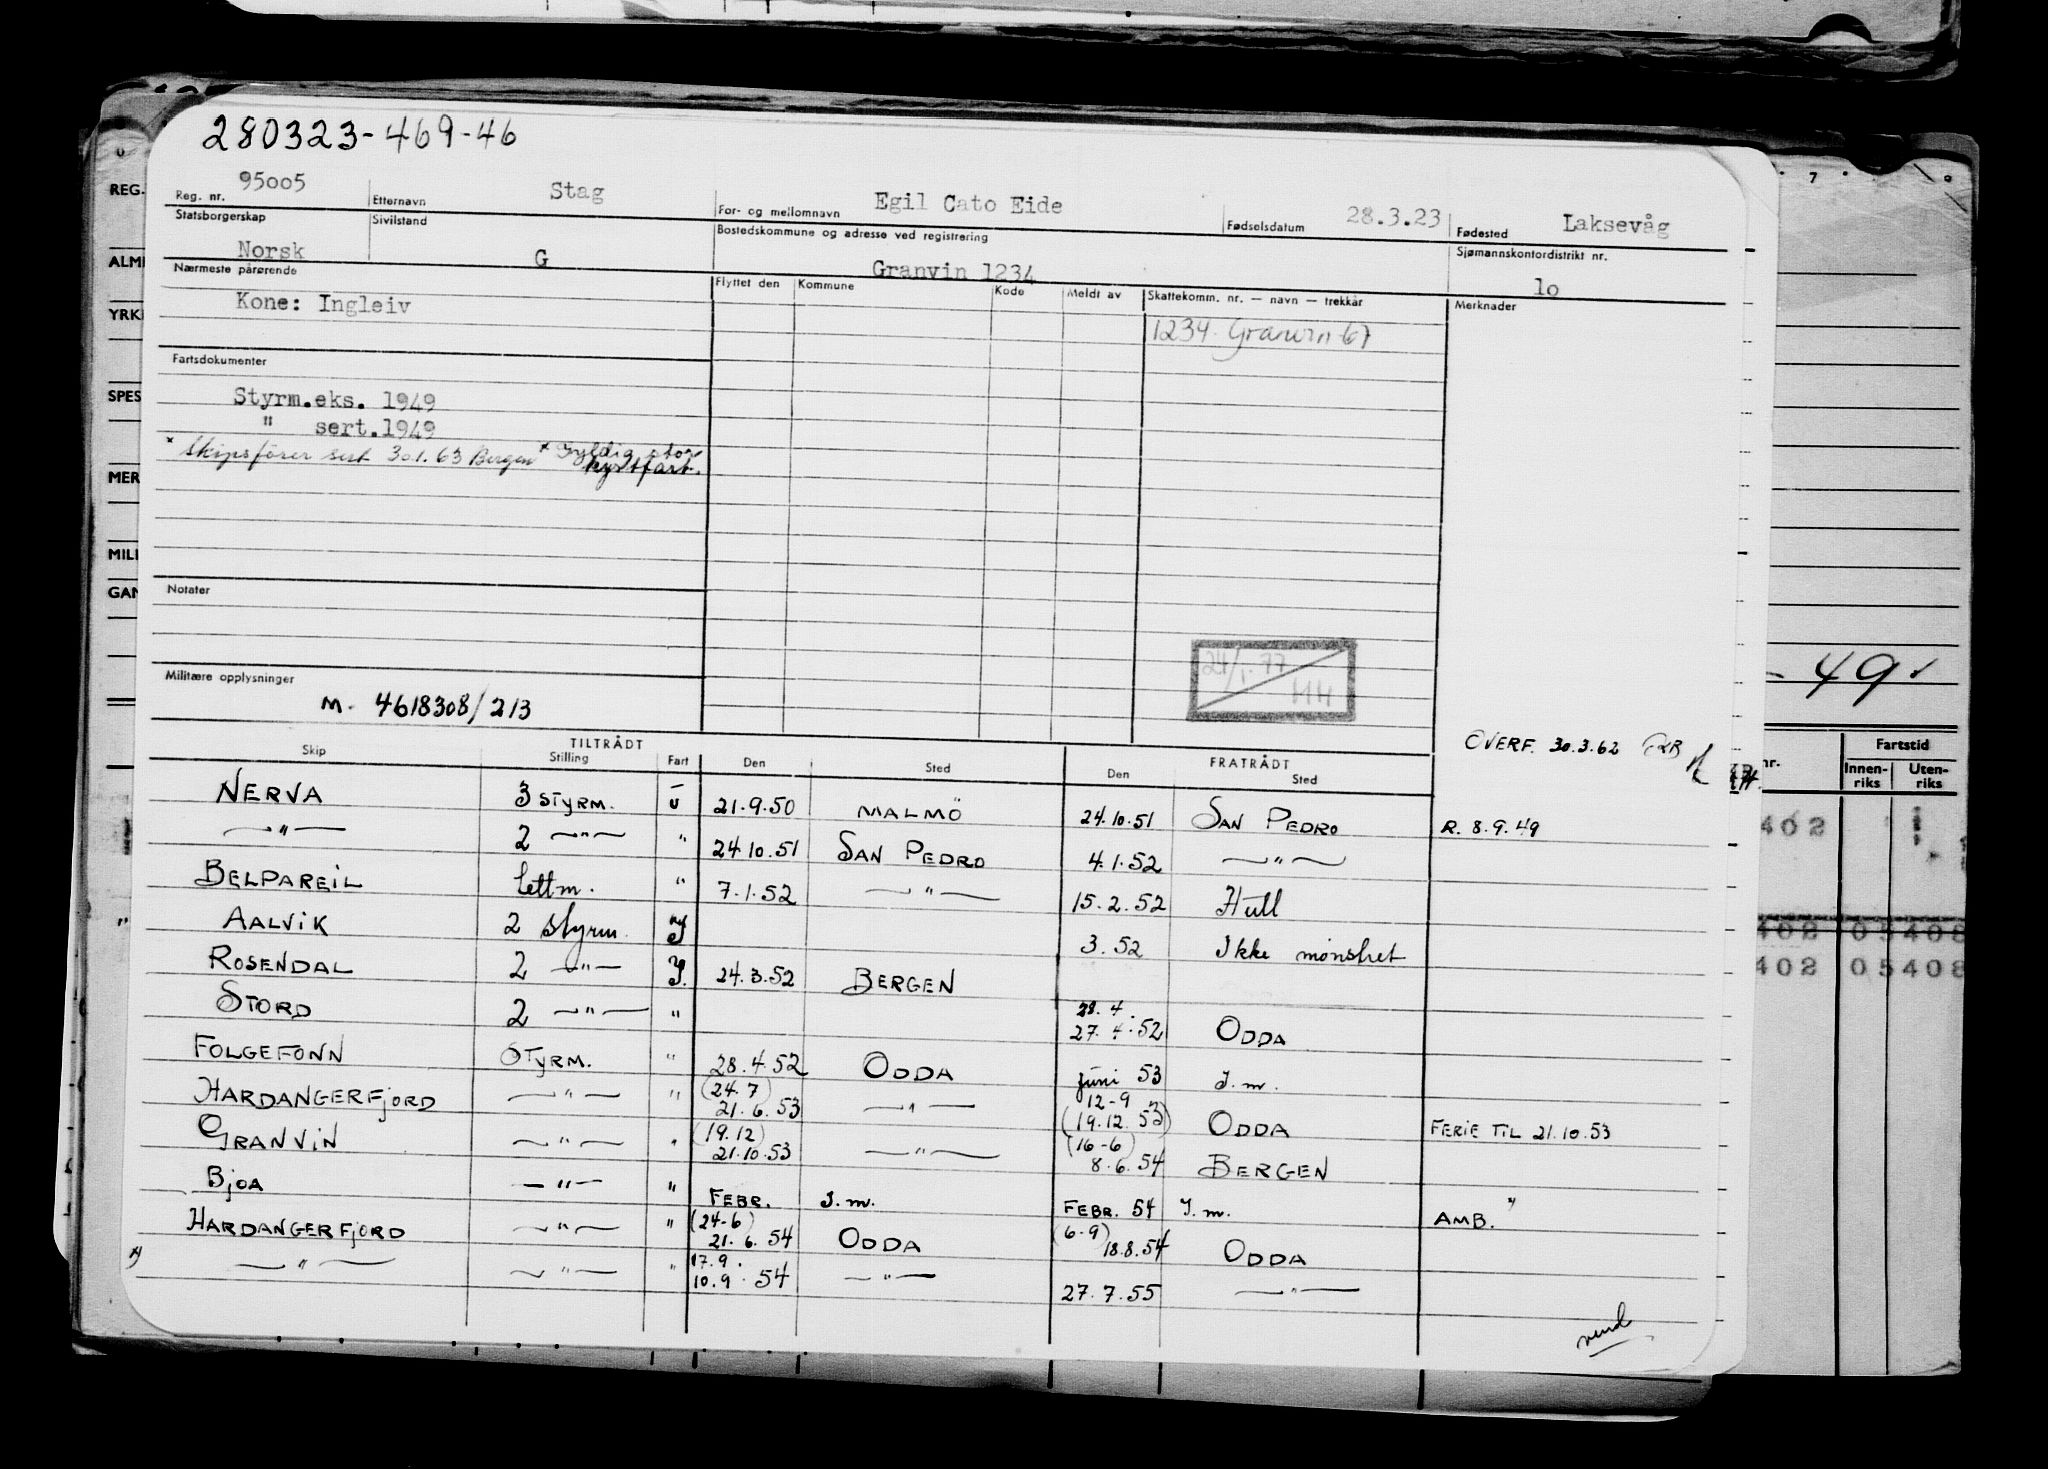 280323-469-46
Reg. nr. 95005 Etternavn Stag For- og mellomnavn Egil Cato Eide Fødselsdatum 28.3.23 Fødested Laksevåg
Statsborgerskap Norsk Sivilstand G Bostedskommune og adresse ved registrering Granvin 1234 Sjømannskontordistrikt nr. 10
Nærmeste pårørende Flyttet den Kommune Kode Meldt av Skattekomm. nr. — navn — trekkår Merknader
Kone: Ingleiv 1234. Granvin-67
Fartsdokumenter
Styrm.eks. 1949
" sert.1949
* Skipsfører sert 30.1.63 Bergen * Gyldig stor
kystfart.
Notater
24/1.77
HH
Militære opplysninger
M. 4618308/213
OVERF. 30.3.62
TILTRÅDT FRATRÅDT
Skip Stilling Fart Den Sted Den Sted
NERVA 3 STYRM. U 21.9.50 MALMÖ 24.10.51 SAN PEDRO R. 8.9.49
—"— 2 —"— " 24.10.51 SAN PEDRO 4.1.52 —"—
BELPAREIL lettm. " 7.1.52 —"— 15.2.52 Hull
AALVIK 2 styrm. 3.52 Ikke mønstret
ROSENDAL 2 —"— 24.3.52 BERGEN
STORD 2 —"— " 28.4. 27.4.52 ODDA
FOLGEFONN STYRM. " 28.4.52 ODDA juni 53 I.m.
HARDANGERFJORD —"— " (24.7) 21.6.53 —"— 12-9 (19.12.53) ODDA FERIE TIL 21.10.53
GRANVIN —"— " (19.12) 21.10.53 —"— (16-6) 8.6.54 BERGEN
BJOA —"— " FEBR. I.m. FEBR. 54 I.m. AMB. "
HARDANGERFJORD —"— " (24-6) 21.6.54 ODDA (6.9) 18.8.54 ODDA
—"— —"— " 17.9. 10.9.54 —"— 27.7.55 —"—
vend
REG.
ALM
YRK
SPES
MER
MILI
GAN
7
- 49.
nr. Fartstid
Innen-riks Uten-riks
402
402 05408
402 05408